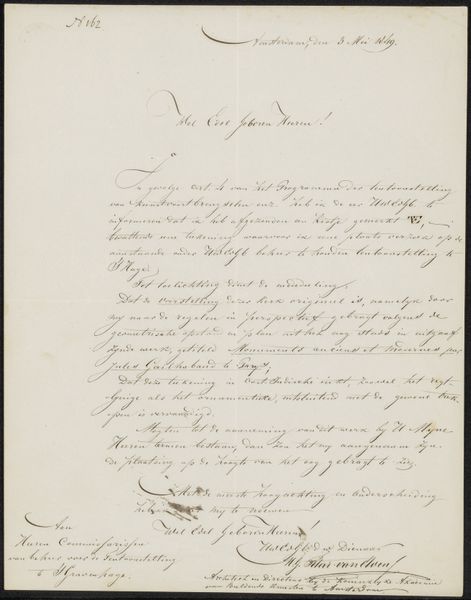 No 162
Amsterdam, den 3 Mei 1849.
Wel Edel Geboren Heeren!
In gevolge art. 4 van het Programma der tentoonstelling
van kunstvoortbrengselen enz. heb ik de eer UWelEdb te
informeren dat ik heb afgezonden een kistje gemerkt
bevattende eene teekening waarvoor ik eene plaats verzoek op de
aanstaande onder UWelEdb beheer te houden tentoonstelling te
'sHage.
Tot toelichting dient de mededeeling.
Dat de voorstelling dezer kerk origineel is, namelijk door
my naar de regelen in perspectief gebragt volgens de
geometrische opstand en plan uit het nog steeds in uitgaaf
zijnde werk, getiteld Monuments anciens et modernes par
Jules Gailhabaud te Parys,
Dat deze teekening in Oost Indische inkt, zoowel het
als het ornamentieke, uitsluitend met de gewone
pen is vervaardigd.
Mogten tot de aanneming van dit werk by U Myne
Heeren termen bestaan, dan zou het my aangenaam zijn
de plaatsing op de hoogte van het oog gebragt te zien.
Met de meeste hoogachting en onderscheiding
heb ik my te noemen
Wel Edel Geboren Heeren!
UWelEdb dw Dienaar
Aan
Heeren Commissarissen
van beheer voor de Tentoonstelling
te 'sGravenhage.
Architect en Directeur by de Koninklyke Akademie
van Beeldende Kunsten te Amsterdam